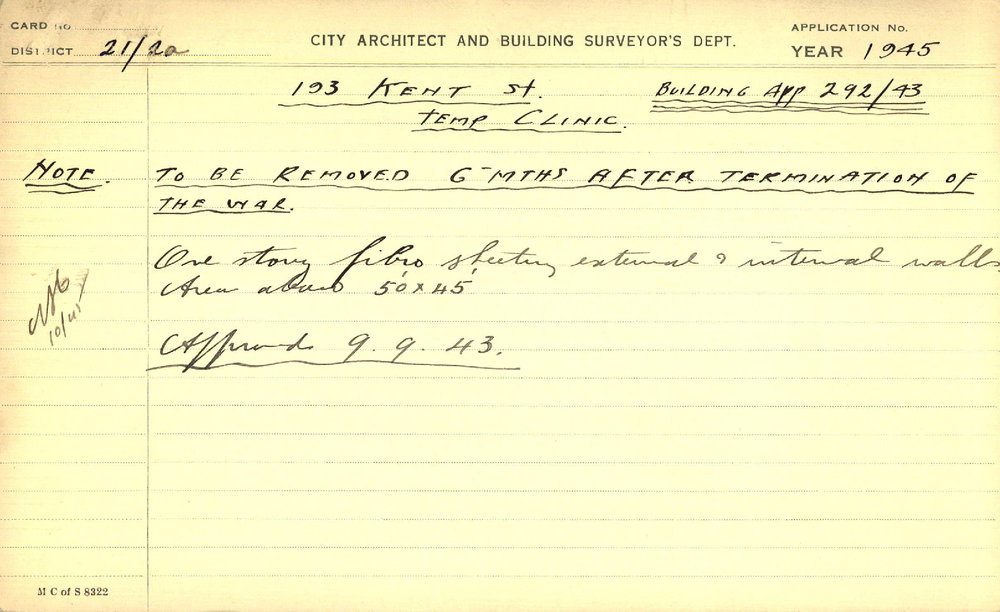 CARD No
DISTRICT 21/2a
CITY ARCHITECT AND BUILDING SURVEYOR'S DEPT.
APPLICATION No.
YEAR 1945
193 KENT St.
BUILDING App 292/43
TEMP CLINIC.
NOTE.
TO BE REMOVED 6-MTHS AFTER TERMINATION OF
THE WAR.
One story fibro sheeting external & internal walls
Area about 50' x 45'
10/45
Approved 9.9.43.
M C of S 8322